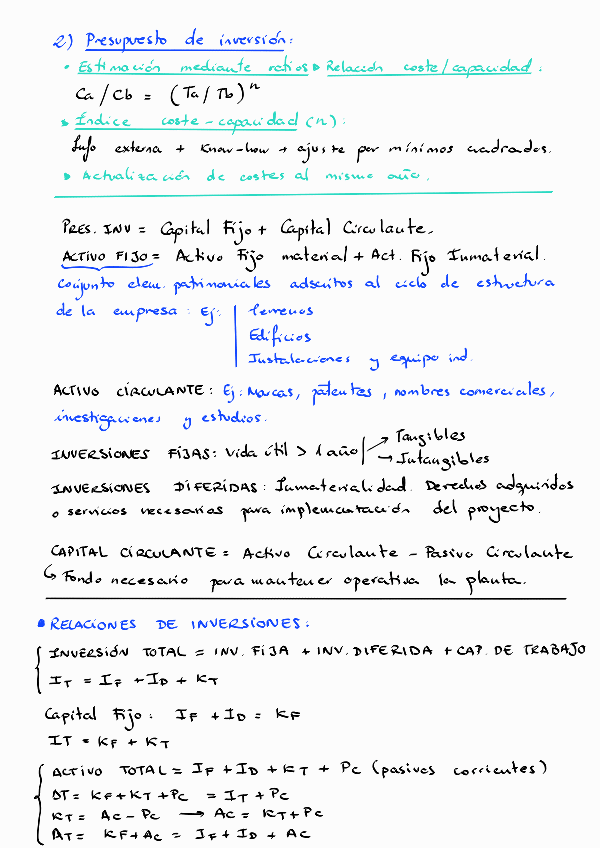 2) Presupuesto de inversión:
• Estimación mediante ratios ▸ Relación coste/capacidad.
Ca/Cb = (Ta/Tb)^n
▸ Índice coste-capacidad (n):
Info externa + know-how → ajuste por mínimos cuadrados.
▸ Actualización de costes al mismo año.
PRES. INV = Capital Fijo + Capital Circulante.
ACTIVO FIJO = Activo Fijo material + Act. Fijo Inmaterial.
Conjunto elem. patrimoniales adscritos al ciclo de estructura
de la empresa: Ej: terrenos
Edificios
Instalaciones y equipo ind.
ACTIVO CIRCULANTE: Ej: Marcas, patentes, nombres comerciales,
investigaciones y estudios.
INVERSIONES FIJAS: Vida útil > 1 año → Tangibles
→ Intangibles
INVERSIONES DIFERIDAS: Inmaterialidad. Derechos adquiridos
o servicios necesarios para implementación del proyecto.
CAPITAL CIRCULANTE = Activo Circulante - Pasivo Circulante
↳ Fondo necesario para mantener operativa la planta.
• RELACIONES DE INVERSIONES:
INVERSIÓN TOTAL = INV. FIJA + INV. DIFERIDA + CAP. DE TRABAJO
IT = IF + ID + KT
Capital Fijo: IF + ID = KF
IT = KF + KT
ACTIVO TOTAL = IF + ID + KT + Pc (pasivos corrientes)
AT = KF + KT + Pc = IT + Pc
KT = Ac - Pc → Ac = KT + Pc
AT = KF + Ac = IF + ID + Ac